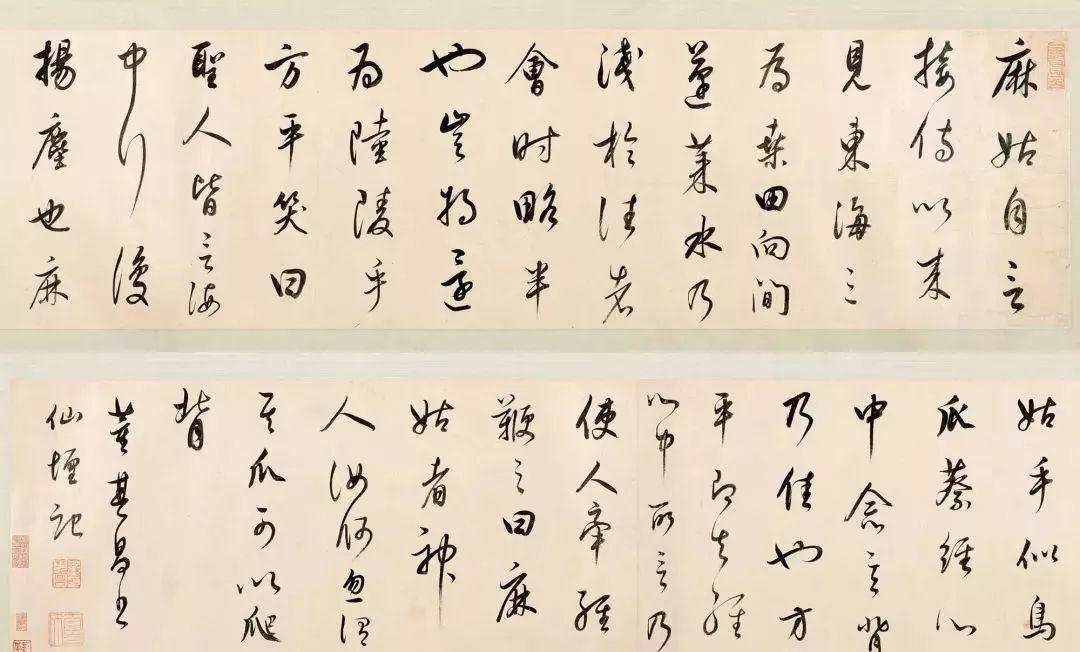 麻姑自言
接侍以来
見東海三
為桒田向間
蓬莱水乃
淺於往者
會时略半
也豈将還
为陸陵乎
方平笑曰
聖人皆言海
中行復
揚塵也麻
姑手似鳥
爪蔡經心
中念言背
乃佳也方
平即知經
心中所言乃
使人牽經
鞭之曰麻
姑者神
人汝何忽謂
其爪可以爬
背
董其昌书
仙壇記